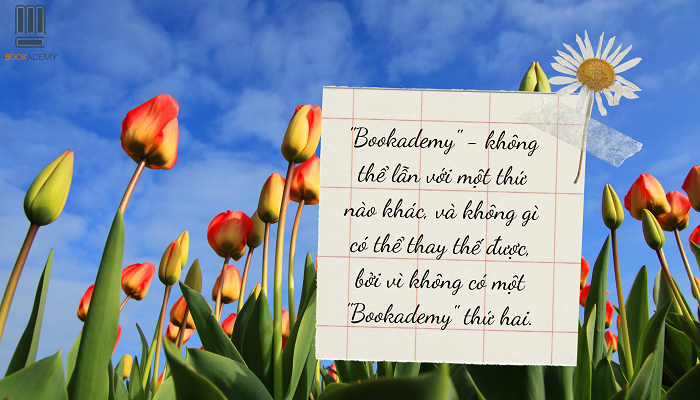 BOOKADEMY
"Bookademy" - không
thể lẫn với một thứ
nào khác, và không gì
có thể thay thế được,
bởi vì không có một
"Bookademy" thứ hai.